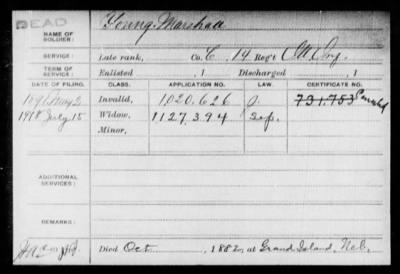 DEAD
NAME OF SOLDIER: Young, Marshall
SERVICE: Late rank, Co. C, 14 Reg't
TERM OF SERVICE: Enlisted , 1 Discharged , 1
DATE OF FILING. CLASS. APPLICATION NO. LAW. CERTIFICATE NO.
1891 Invalid, 1.020.626 J. 731.753
1918 July 15 Widow, 1127.394
Minor,
ADDITIONAL SERVICES:
REMARKS:
Died Oct , 1882, at Grand Island, Neb.